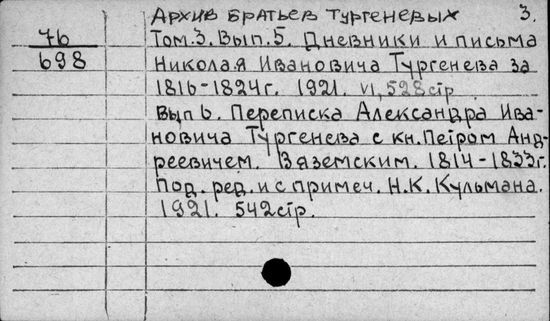 Архив братьев Тургеневых 3.
76
698
Том.3. Вып.5. Дневники и письма
Николая Ивановича Тургенева за
1816-1824г. 1921. VI, 528стр
Вып 6. Переписка Александра Ива-
новича Тургенева с кн. Петром Анд-
реевичем. Вяземским. 1814-1833г.
Под. ред. и с примеч. Н.К. Кульмана.
1921. 542стр.